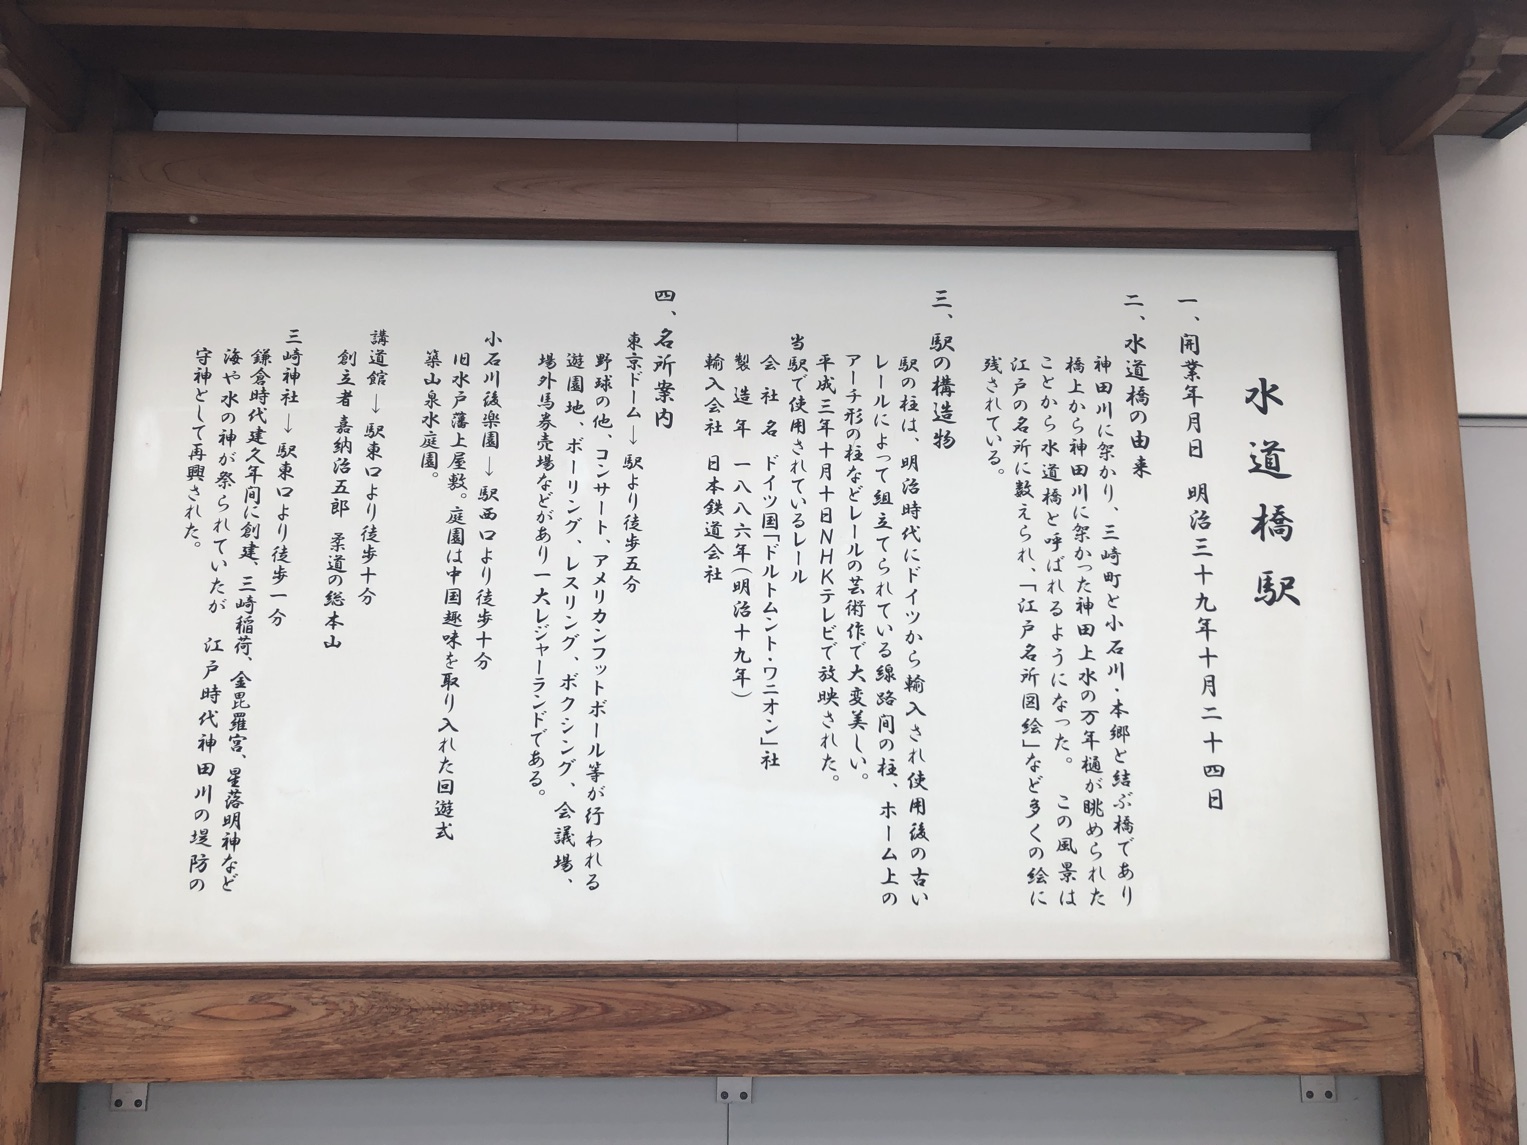 水道橋駅
一、開業年月日 明治三十九年十月二十四日
二、水道橋の由来
神田川に架かり、三崎町と小石川・本郷と結ぶ橋であり
橋上から神田川に架かった神田上水の万年樋が眺められた
ことから水道橋と呼ばれるようになった。 この風景は
江戸の名所に数えられ、「江戸名所図絵」など多くの絵に
残されている。
三、駅の構造物
駅の柱は、明治時代にドイツから輸入され使用後の古い
レールによって組立てられている線路間の柱、ホーム上の
アーチ形の柱などレールの芸術作で大変美しい。
平成三年十月十日NHKテレビで放映された。
当駅で使用されているレール
会社名 ドイツ国「ドルトムント・ワニオン」社
製造年 一八八六年(明治十九年)
輸入会社 日本鉄道会社
四、名所案内
東京ドーム→駅より徒歩五分
野球の他、コンサート、アメリカンフットボール等が行われる
遊園地、ボーリング、レスリング、ボクシング、会議場、
場外馬券売場などがあり一大レジャーランドである。
小石川後楽園→駅西口より徒歩十分
旧水戸藩上屋敷。庭園は中国趣味を取り入れた回遊式
築山泉水庭園。
講道館→駅東口より徒歩十分
創立者 嘉納治五郎 柔道の総本山
三崎神社→駅東口より徒歩一分
鎌倉時代建久年間に創建、三崎稲荷、金毘羅宮、星落明神など
海や水の神が祭られていたが 江戸時代神田川の堤防の
守神として再興された。